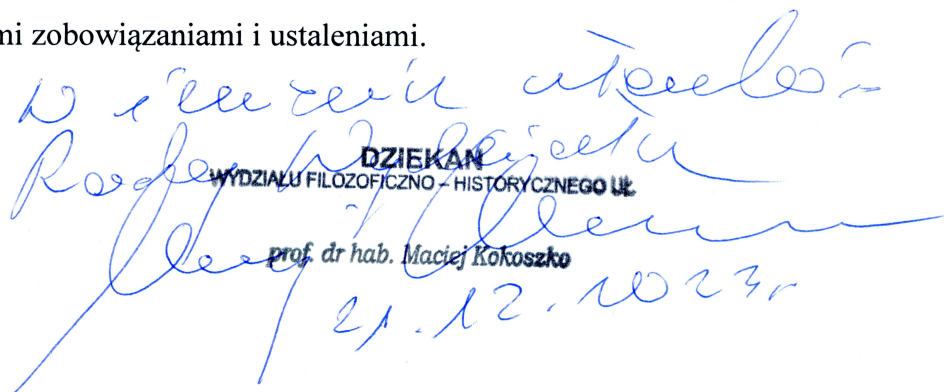 mi zobowiązaniami i ustaleniami.
W imieniu członków
Rady Wydziału
DZIEKAN
WYDZIAŁU FILOZOFICZNO – HISTORYCZNEGO UŁ
prof. dr hab. Maciej Kokoszko
21.12.2023r